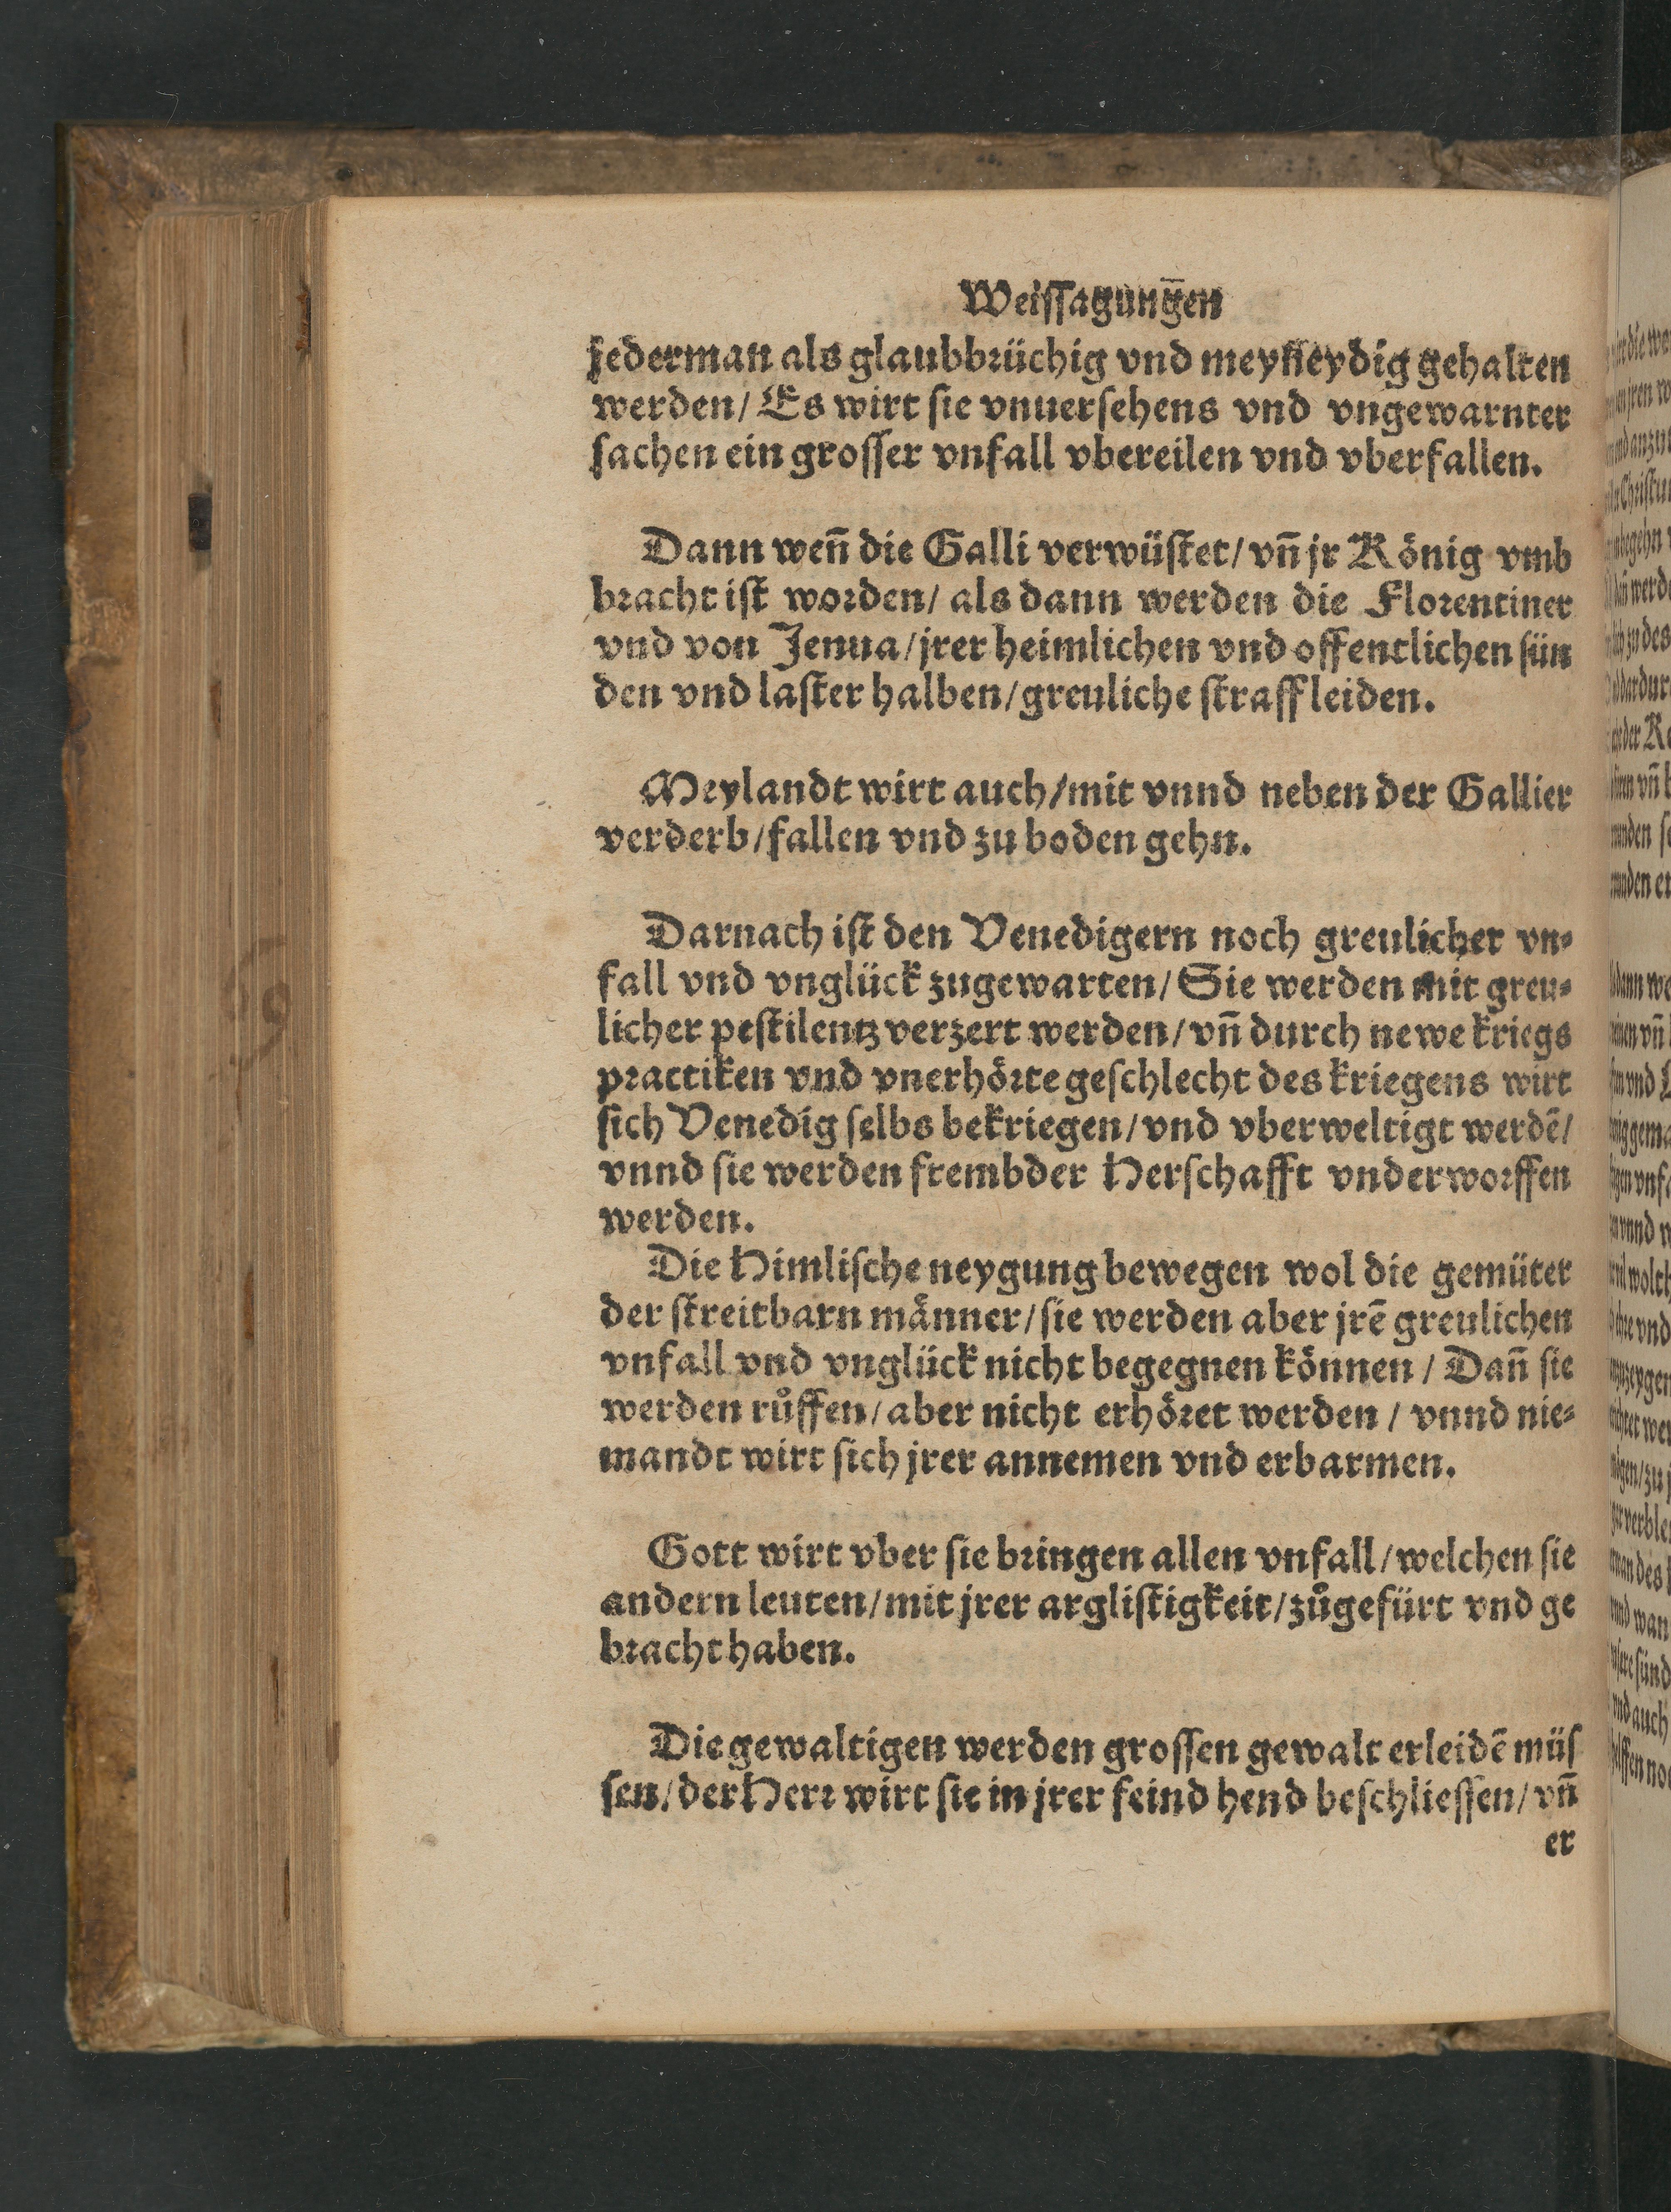 Weiſſagungen
jederman als glaubbrüchig vnd meyneydig gehalten
werden/ Es wirt ſie vnuerſehens vnd vngewarnter
ſachen ein groſſer vnfall vbereilen vnd vberfallen.
Dann weñ die Galli verwüſtet/ vñ jr König vmb
bracht iſt worden/ als dann werden die Florentiner
vnd von Jenua/ jrer heimlichen vnd offentlichen ſün
den vnd laſter halben/ greuliche ſtraff leiden.
Meylandt wirt auch/ mit vnnd neben der Gallier
verderb/ fallen vnd zu boden gehn.
Darnach iſt den Venedigern noch greulicher vn⸗
fall vnd vnglück zugewarten/ Sie werden mit greu⸗
licher peſtilentz verzert werden/ vñ durch newe kriegs
practiken vnd vnerhörte geſchlecht des kriegens wirt
ſich Venedig ſelbs bekriegen/ vnd vberweltigt werdē/
vnnd ſie werden frembder Herſchafft vnderworffen
werden.
Die Himliſche neygung bewegen wol die gemüter
der ſtreitbarn männer/ ſie werden aber jrē greulichen
vnfall vnd vnglück nicht begegnen können / Dañ ſie
werden růffen/ aber nicht erhöret werden / vnnd nie⸗
mandt wirt ſich jrer annemen vnd erbarmen.
Gott wirt vber ſie bringen allen vnfall/ welchen ſie
andern leuten/ mit jrer argliſtigkeit/ zůgefürt vnd ge
bracht haben.
Die gewaltigen werden groſſen gewalt erleidē müſ
ſen/ der Herr wirt ſie in jrer feind hend beſchlieſſen/ vñ
er